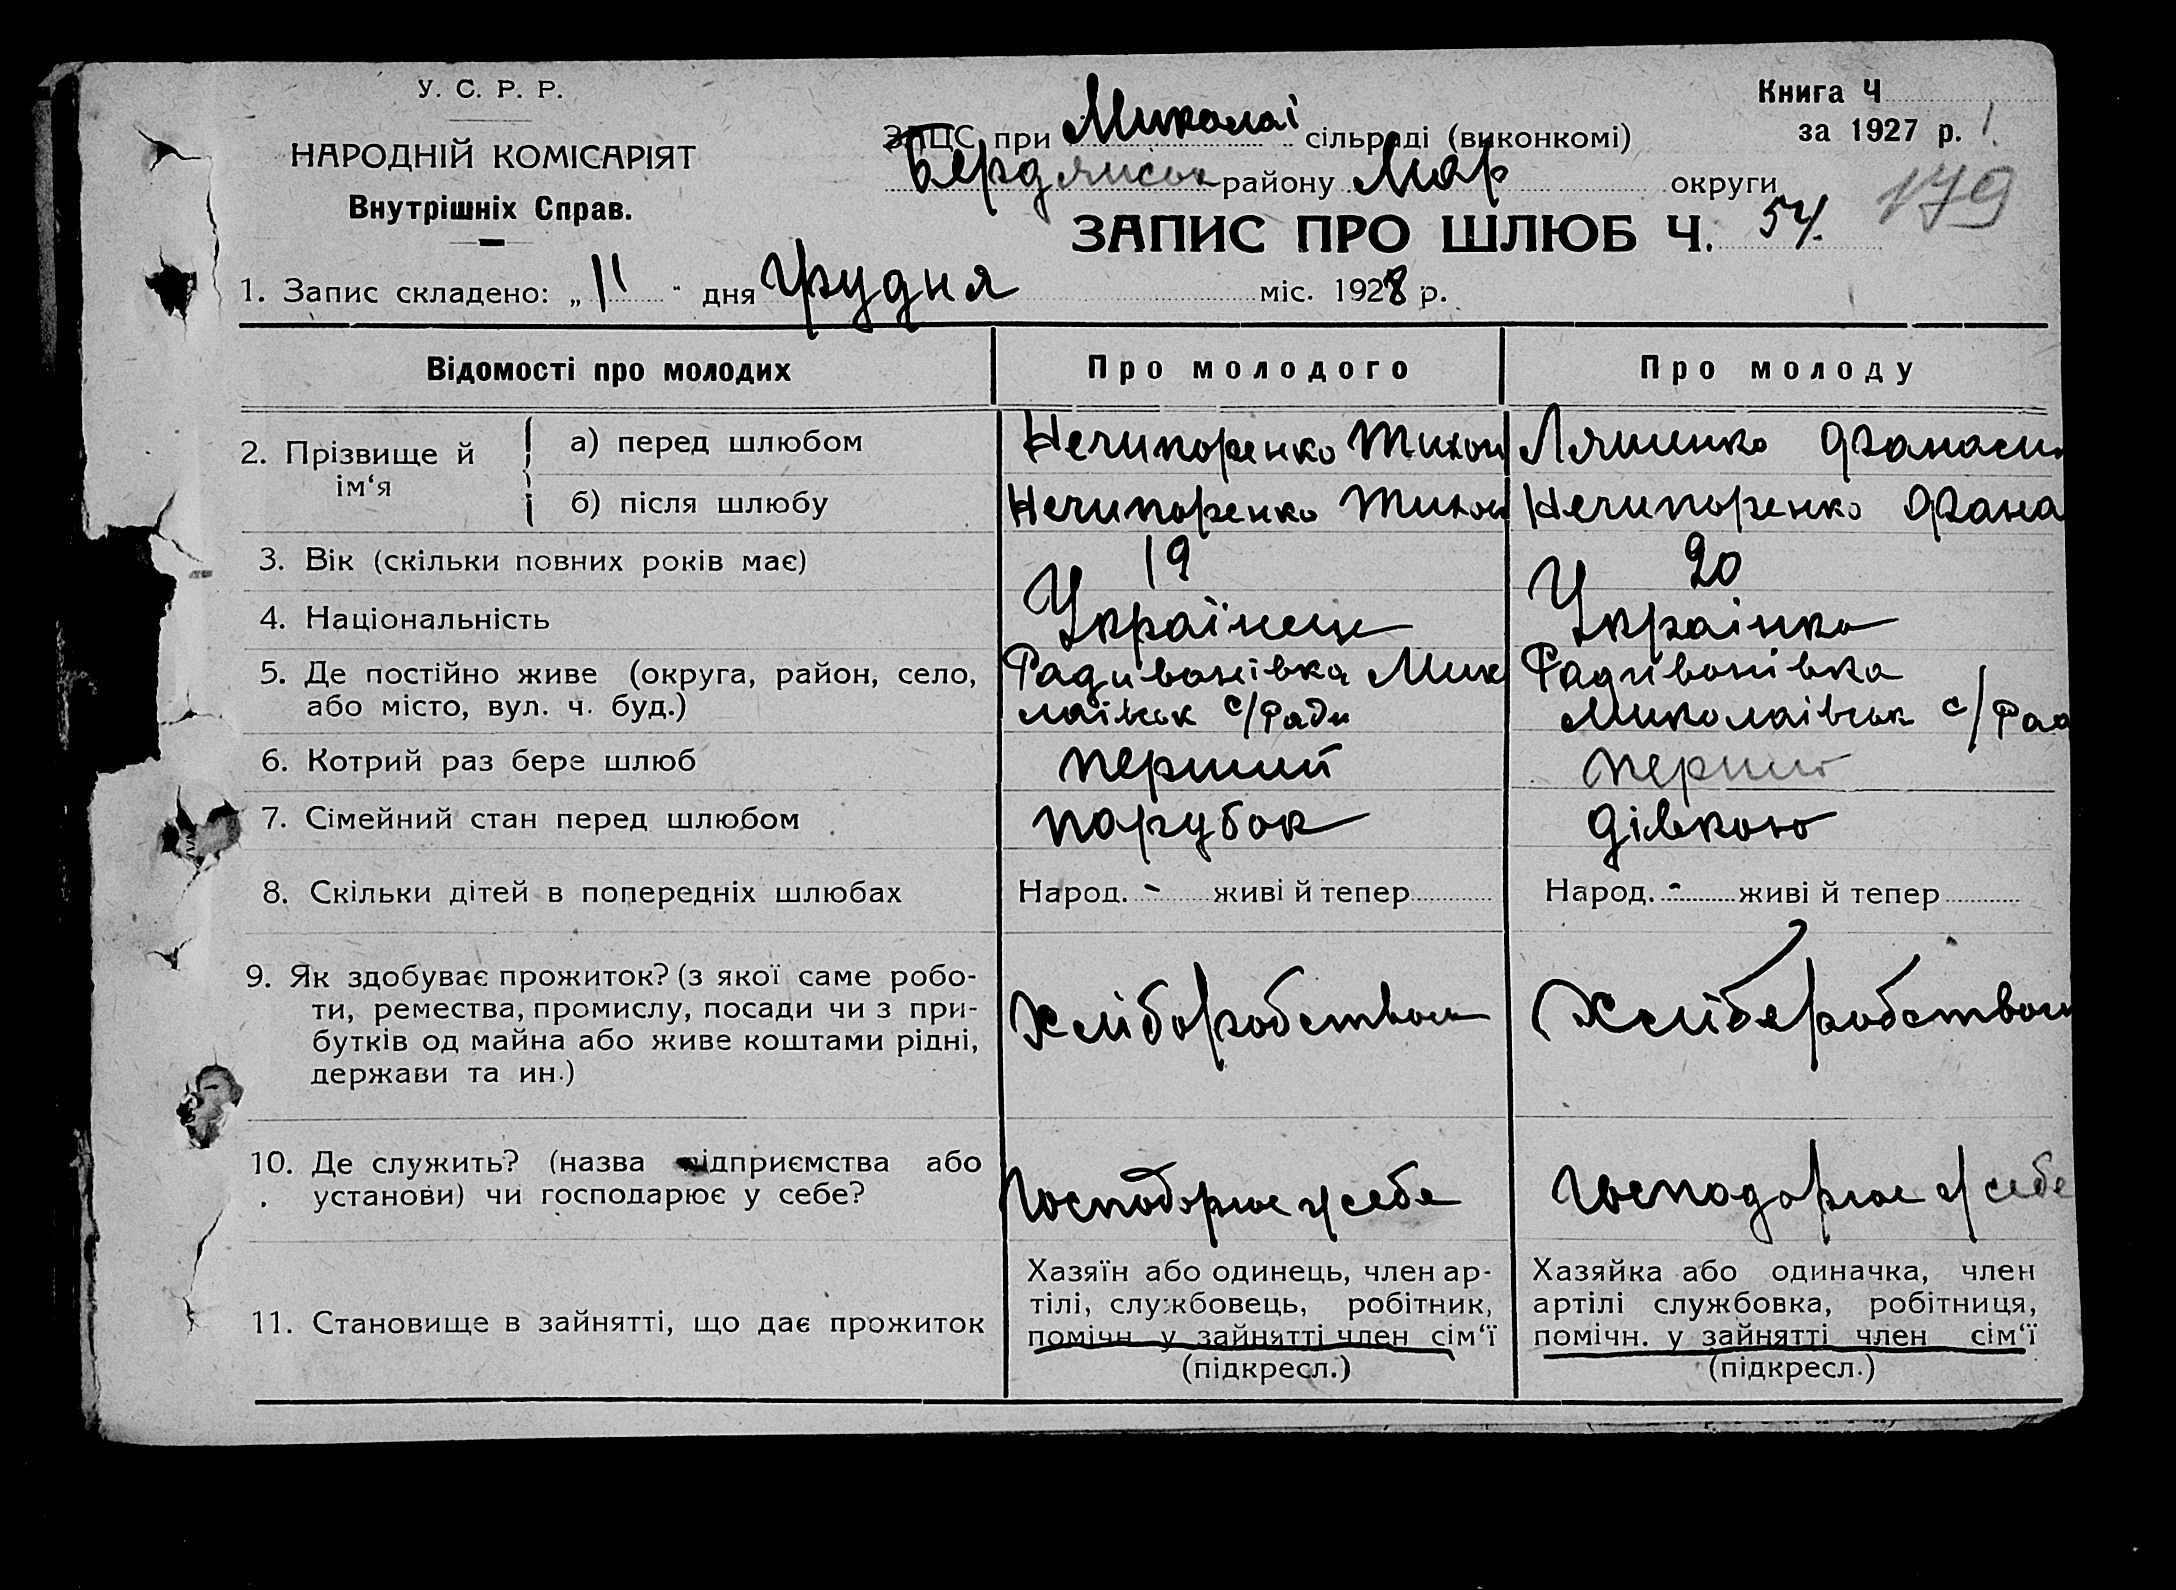 У. С. Р. Р.
НАРОДНІЙ КОМІСАРІЯТ
Внутрішніх Справ.
ЗАЦС при Миколаї сільраді (виконкомі)
Бердянськ району Мар округи
Книга Ч
за 1927 р.
179
ЗАПИС ПРО ШЛЮБ Ч. 54.
1. Запис складено: „11" дня Грудня міс. 1928 р.
Відомості про молодих Про молодого Про молоду
2. Прізвище й ім‘я а) перед шлюбом Нечипоренко Тихон Ляшенко Афанаси
б) після шлюбу Нечипоренко Тихон Нечипоренко Афана
3. Вік (скільки повних років має) 19 20
4. Національність Українець Українка
5. Де постійно живе (округа, район, село, Радивонівка Мик Радивонівка
або місто, вул. ч. буд.) лаївськ с/Ради Миколаівськ с/Рад
6. Котрий раз бере шлюб перший
7. Сімейний стан перед шлюбом парубок дівкою
8. Скільки дітей в попередніх шлюбах Народ. - живі й тепер Народ. - живі й тепер
9. Як здобуває прожиток? (з якої саме робо-
ти, ремества, промислу, посади чи з при- Хліборобством Хліборобством
бутків од майна або живе коштами рідні,
держави та ин.)
10. Де служить? (назва підприємства або
установи) чи господарює у себе? Господарює у себе господарює у себе
11. Становище в зайнятті, що дає прожиток
Хазяїн або одинець, член ар-
тілі, службовець, робітник,
помічн. у зайнятті член сім‘ї
(підкресл.)
Хазяйка або одиначка, член
артілі службовка, робітниця,
помічн. у зайнятті член сім‘ї
(підкресл.)